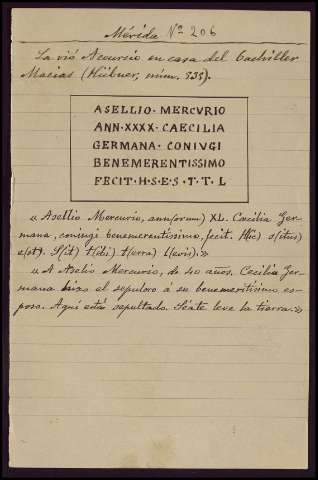 Mérida Nº 206
La vió Accursio en casa del bachiller
Macias (Hübner, núm. 535).
ASELLIO · MERCVRIO
ANN · XXXX · CAECILIA
GERMANA · CONIVGI
BENEMERENTISSIMO
FECIT · H · S · E · S · T · T · L
« Asellio Mercurio, ann(orum) XL. Cæcilia Ger-
mana, coniugi benemerentissimo, fecit. H(ic) s(itus)
e(st). S(it) t(ibi) t(erra) l(evis). »
« A Aselio Mercurio, de 40 años. Cecilia Ger-
mana hizo el sepulcro á su benemeritísimo es-
poso. Aquí está sepultado. Séate leve la tierra. »